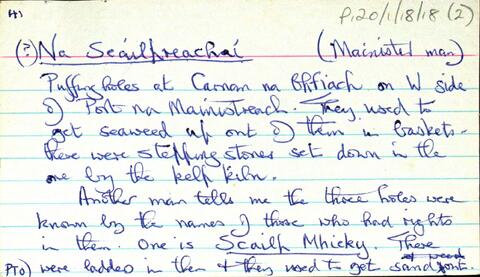 P.20/1/18/18 (2)
(?) Na Scailpreachaí (Mainister man)
Puffing holes at Carnam na bhFiach on W side
of Port na Mainistreach. They used to
get seaweed up out of them in baskets.
there were stepping stones set down in the
one by the kelp kiln.
Another man tells me the three holes were
known by the names of those who had rights
in them. One is Scailp Mhicky. There
PTO) were ladders in them & they used to get sand & weed